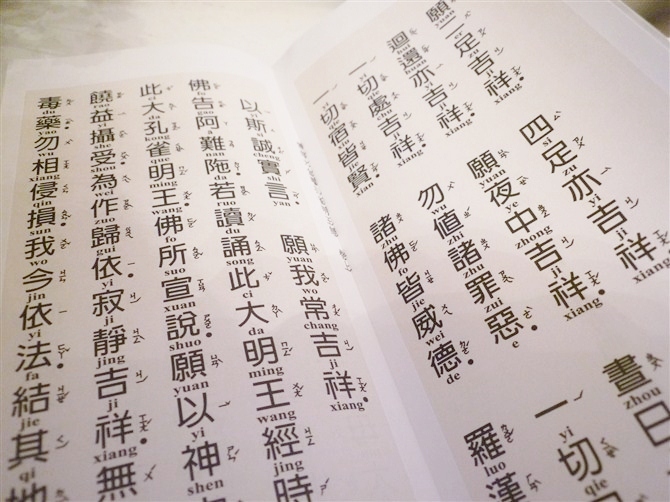 願二足吉祥 四足亦吉祥 晝日
迴還亦吉祥 願夜中吉祥 一切
一切處吉祥 勿值諸罪惡
一切宿皆賢 諸佛皆威德 羅漢
以斯誠實言 願我常吉祥
佛告阿難陁若讀誦此大明王經時
此大孔雀明王佛所宣說願以神
饒益攝受為作歸依寂靜吉祥無
毒藥勿相侵損我今依法結其地